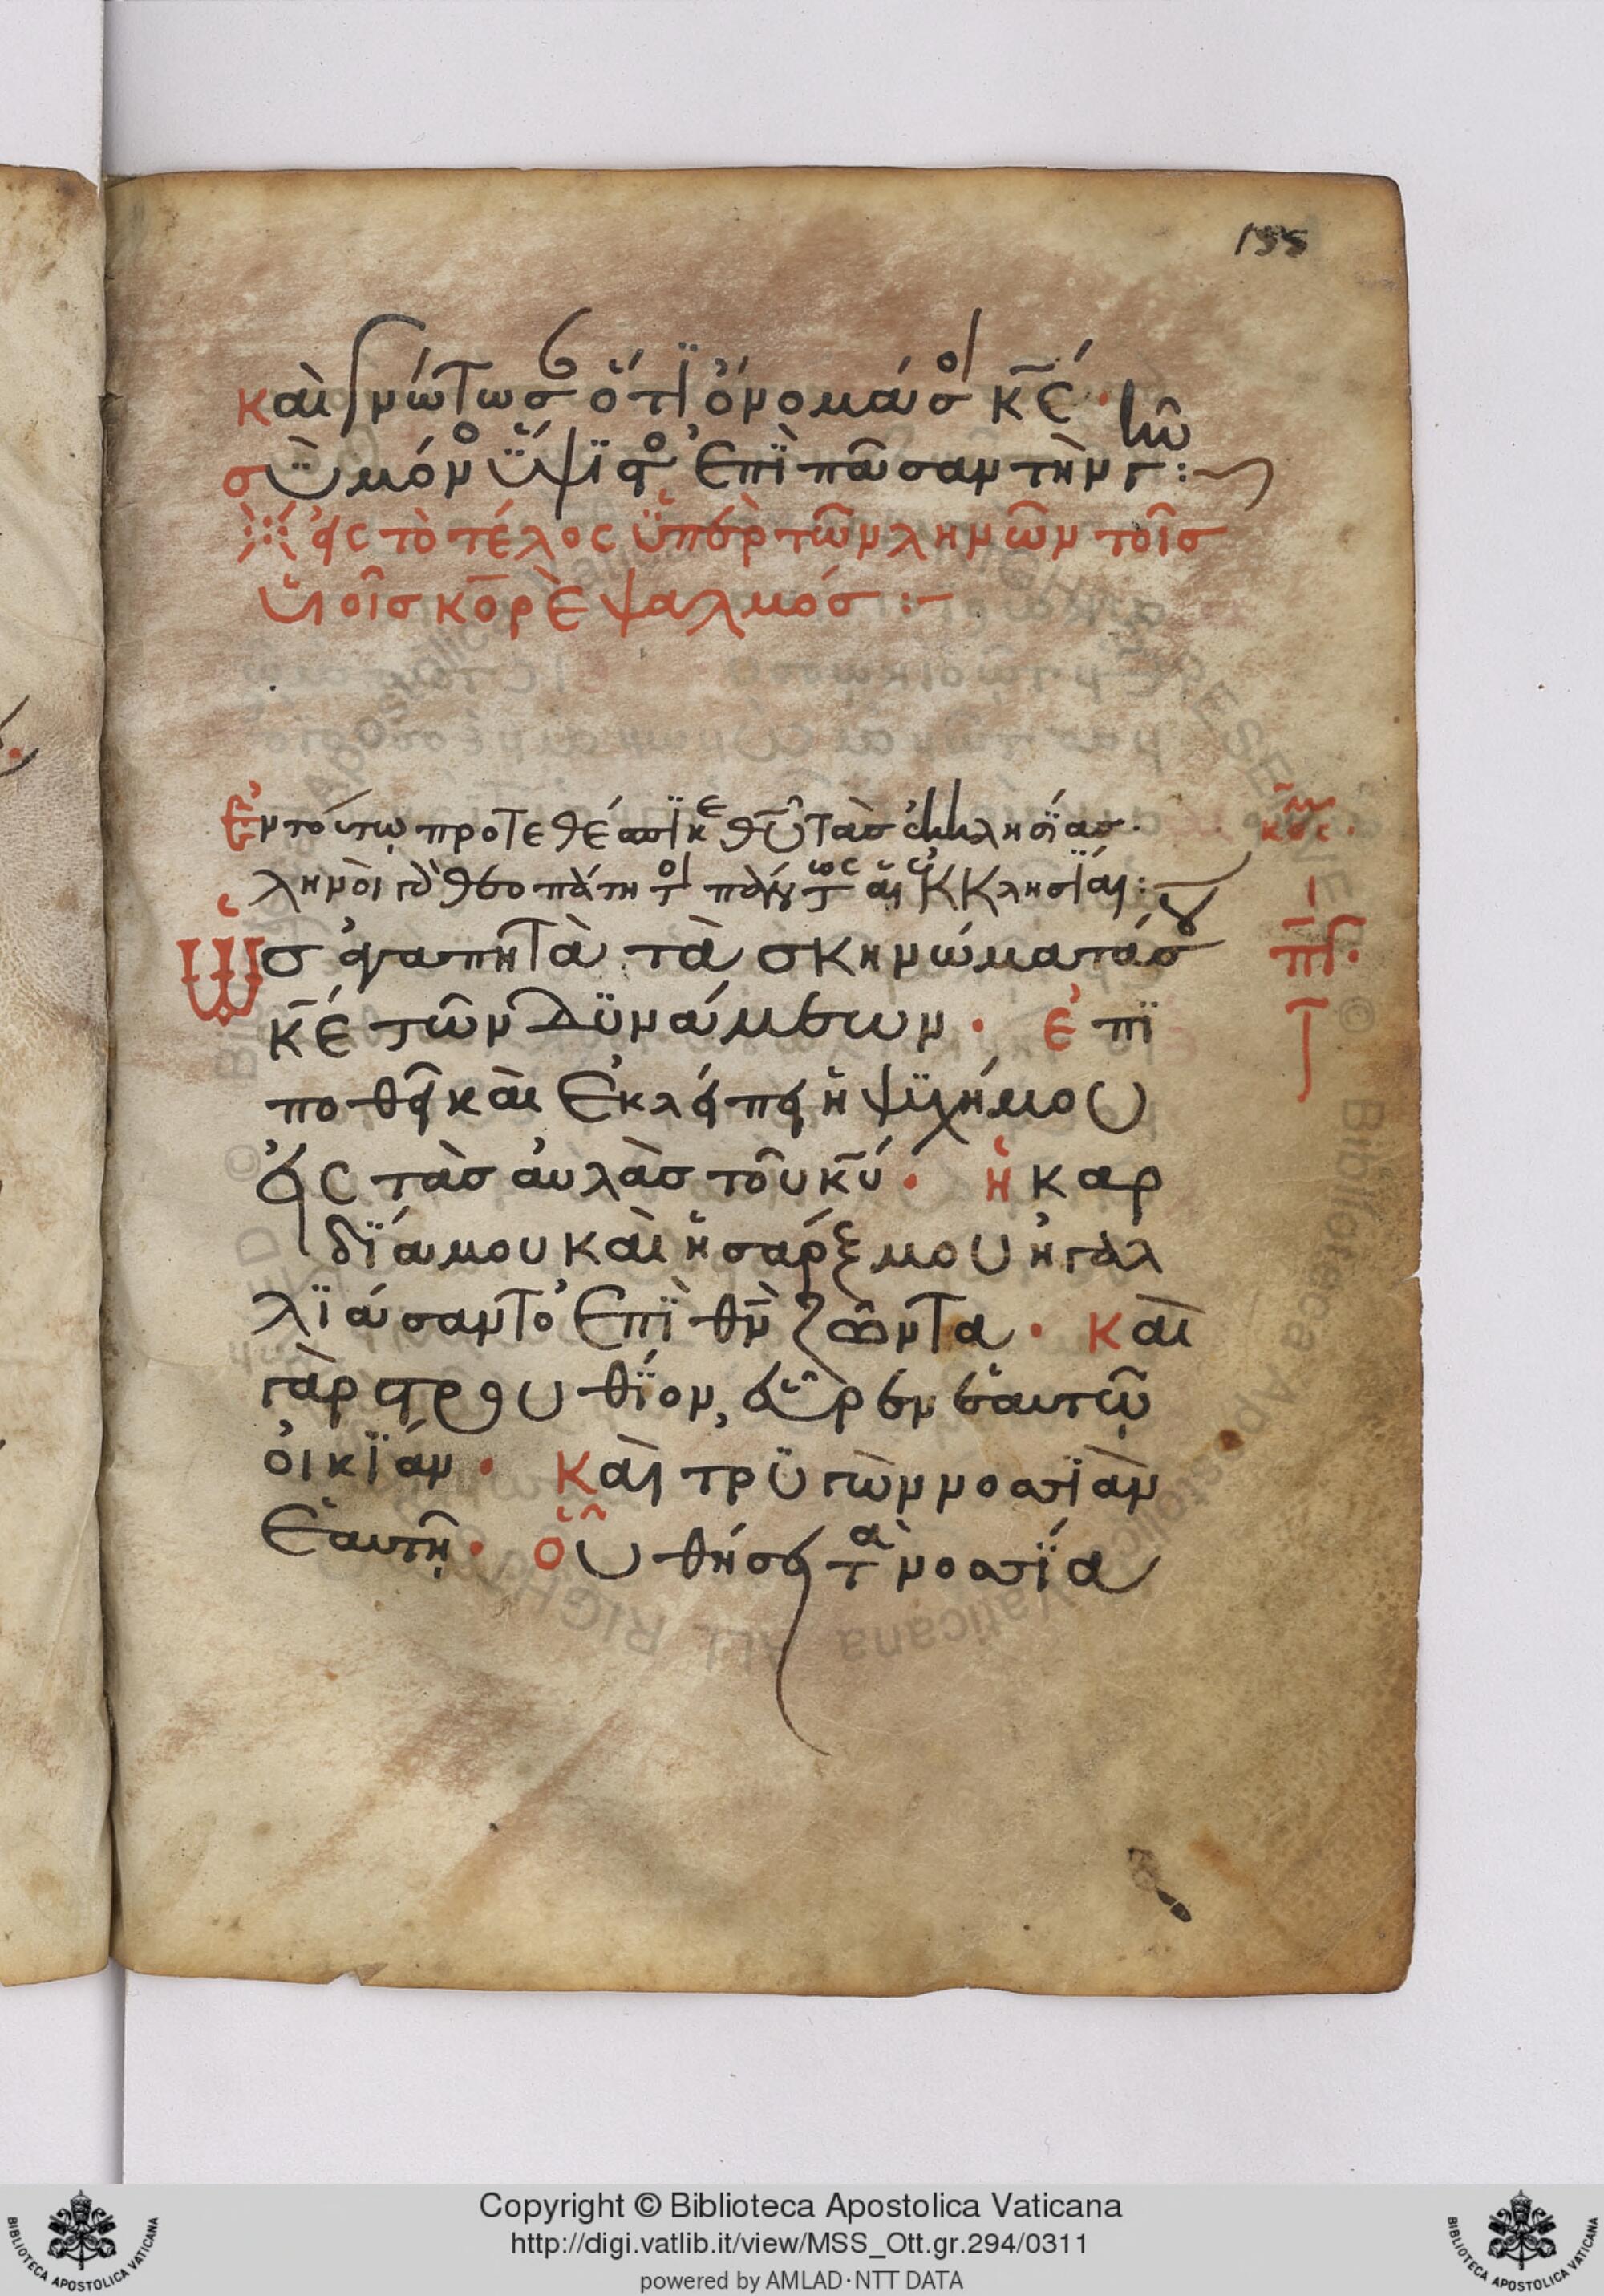 155
καὶ γνώτωσ ὅτι ὄνομά σοι κ̅ε̅·
σὺ μόνοσ ὕψιστοσ ἐπὶ πᾶσαν τὴν γῆν:
εἰς τὸ τέλος ὑπὲρ τῶν ληνῶν τοῖσ
υἱοῖσ κορὲ ψαλμόσ:
Ἐν τούτω προτεθέασται
ληνοὶ
Ὡσ ἀγαπητὰ τὰ σκηνώματά σου
κ̅ε̅ τῶν δυνάμεων· ἐπι
ποθεῖ καὶ ἐκλείπει ἡ ψυχή μου
εἰς τὰσ αὐλὰσ τοῦ κ̅υ̅· ἡ καρ
δία μου καὶ ἡ σάρξ μου ἠγαλ
λιάσαντο ἐπὶ θ̅ν̅ ζῶντα· Καὶ
γὰρ στρουθίον, εὗρεν ἑαυτῶ
οἰκίαν· Καὶ τρυγὼν νοσσιὰν
ἑαυτῆ· οὗ θήσει τὰ νοσσία
Copyright © Biblioteca Apostolica Vaticana
http://digi.vatlib.it/view/MSS_Ott.gr.294/0311
powered by AMLAD·NTT DATA
BIBLIOTECA APOSTOLICA VATICANA
BIBLIOTECA APOSTOLICA VATICANA